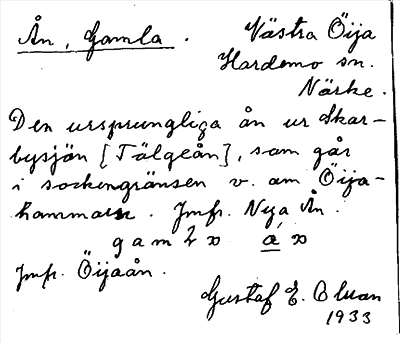 Ån, Gamla.
Västra Öija
Hardemo sn.
Närke.
Den ursprungliga ån ur Skar-
bysjön [Tälgeån], som går
i sockengränsen v. om Öija-
hammaren. Jmfr. Nya Ån.
Jmfr. Öijaån.
Gustaf E.
1933